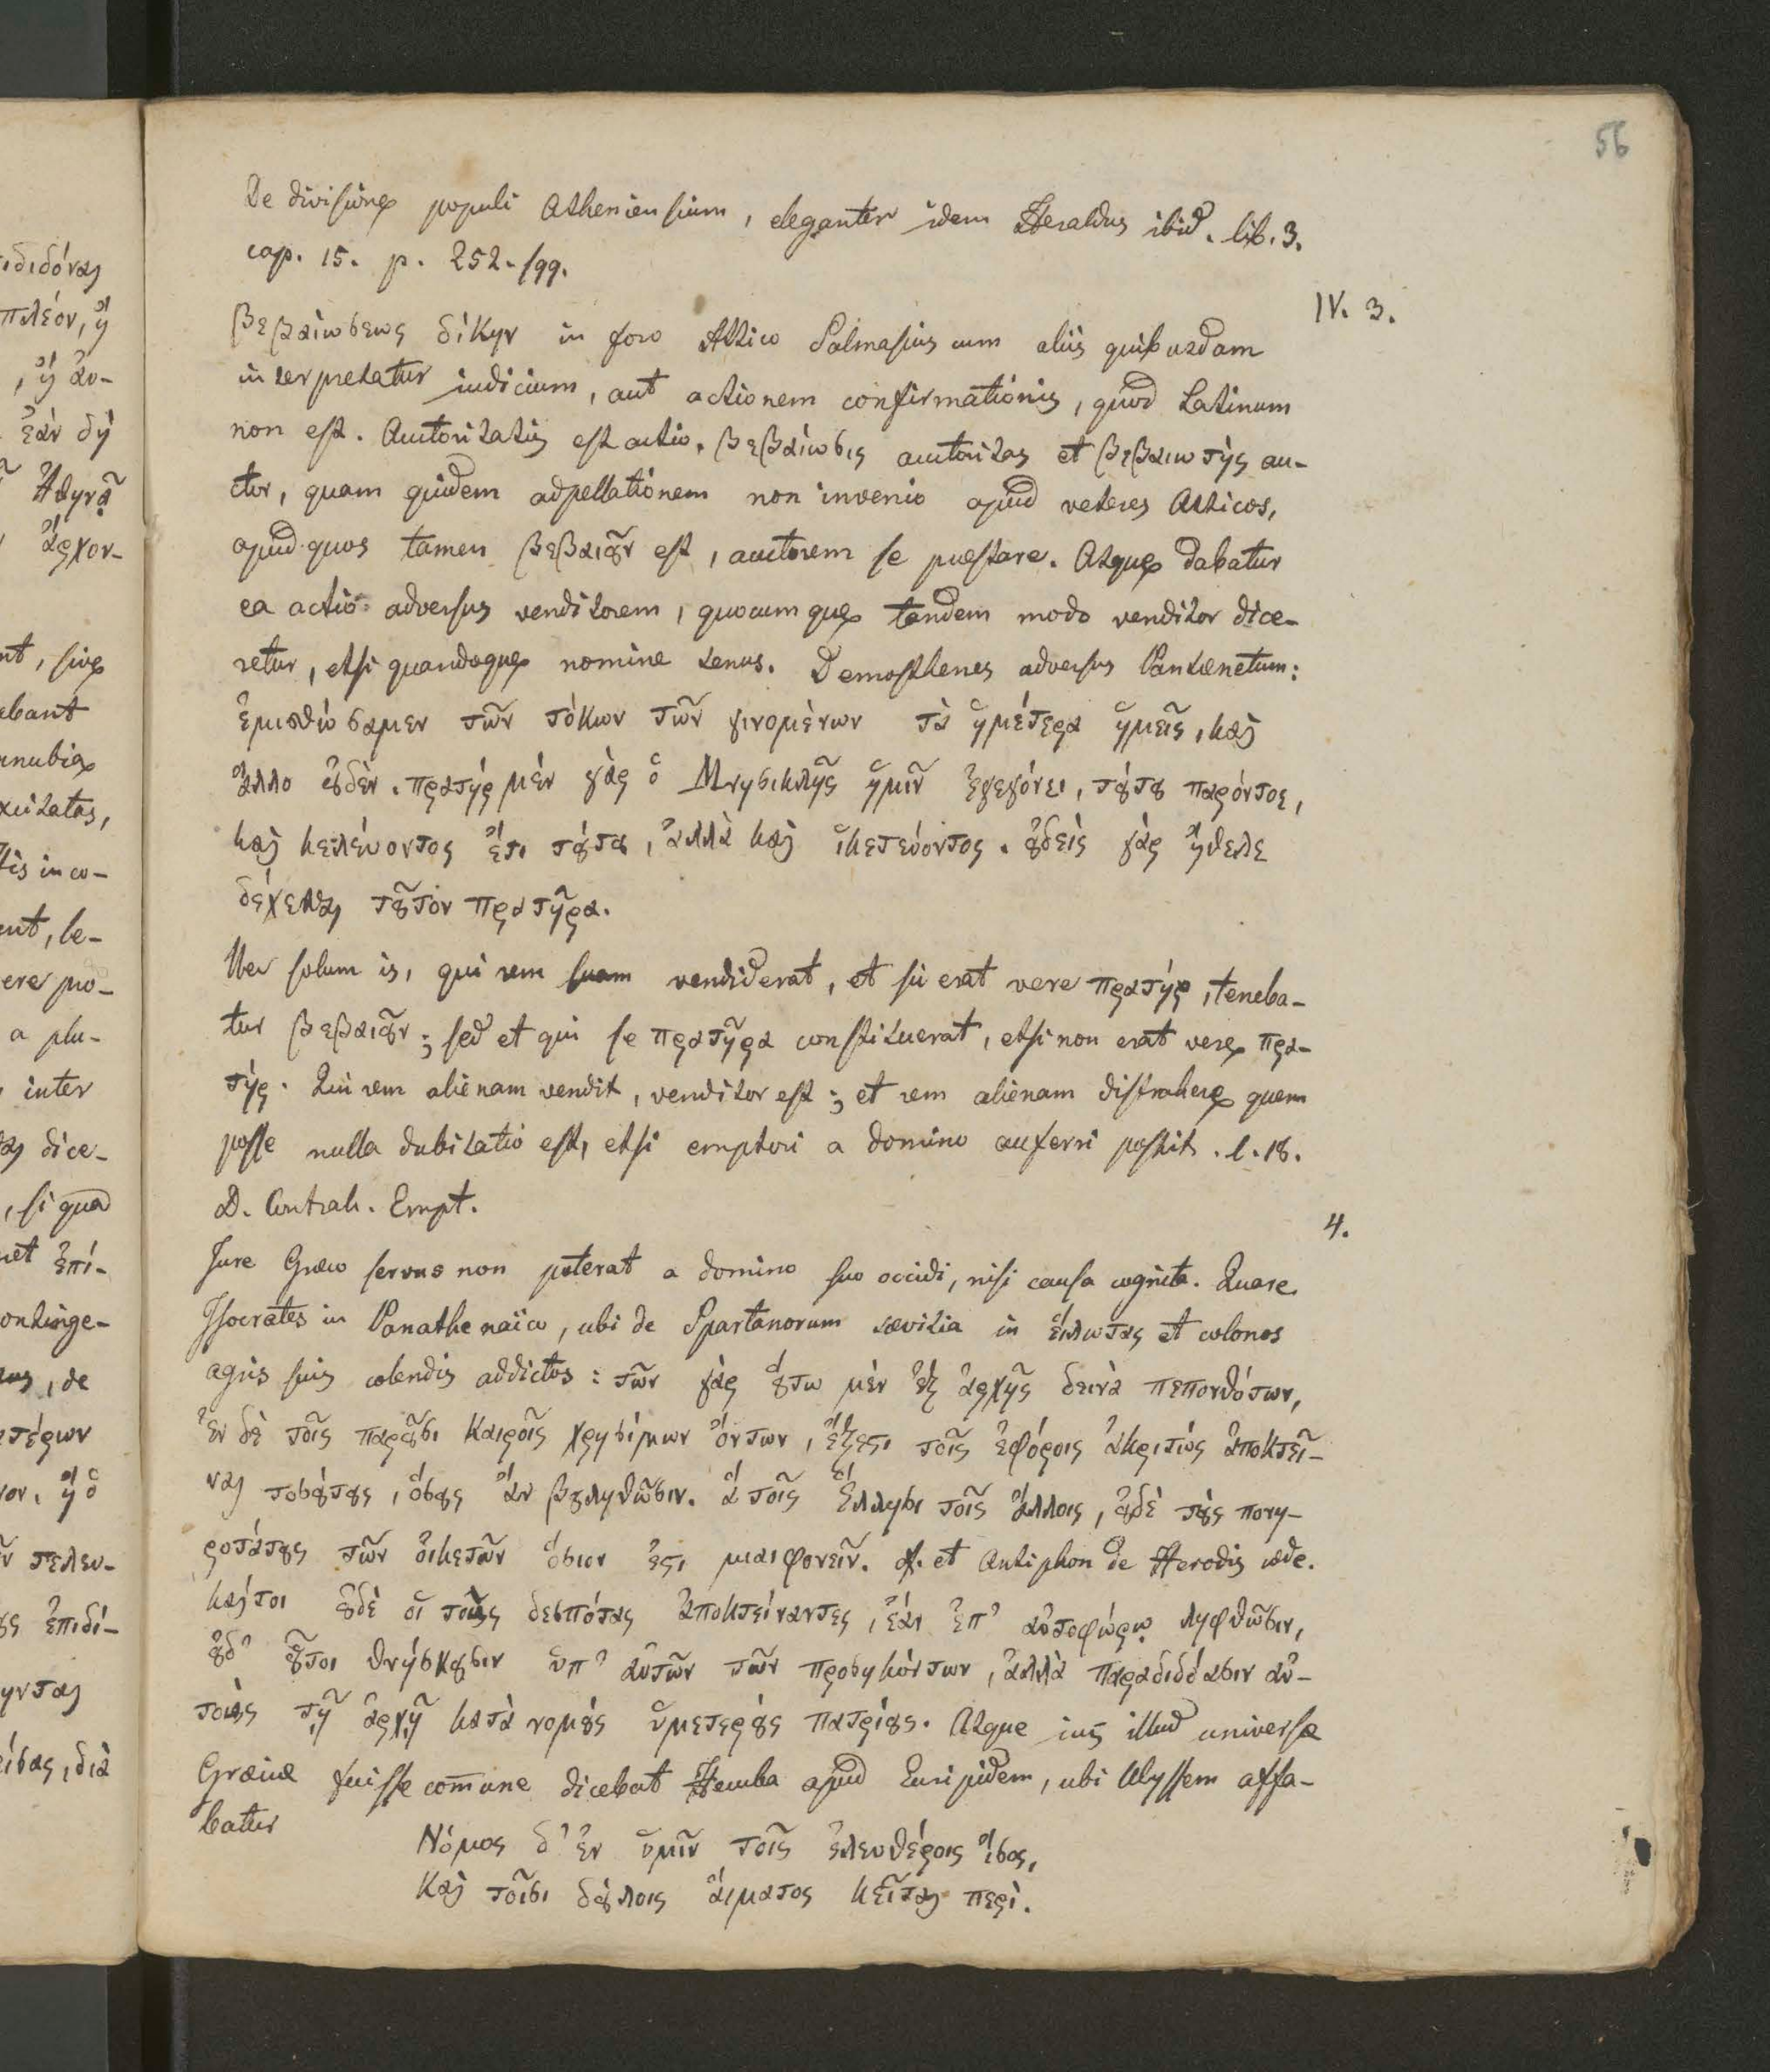 56
De divisione populi Atheniensium, eleganter idem Heraldus ibid. lib. 3.
cap. 15. p. 252. sqq.
IV. 3.
βεβαιώσεως δίκην in foro Attico Salmasius cum aliis quibusdam
interpretatur iudicium, aut actionem confirmationis, quod Latinum
non est. Auctoritatis est actio. βεβαίωσις auctoritas et βεβαιωτής au-
ctor, quam quidem adpellationem non invenio apud veteres Atticos,
apud quos tamen βεβαιȣ͂ν est, auctorem se praestare. Atque dabatur
ea actio adversus venditorem, quocumque tandem modo venditor dice-
retur, etsi quandoque nomine tenus. Demosthenes adversus Pantaenetum:
ἐμισθώσαμεν τῶν τόκων τῶν γινομένων τὰ ἡμέτερα ἡμεῖς, καὶ
ἄλλο ȣ̓δὲν. πρατήρ μέν γὰρ ὁ Μνησικλῆς ἡμῖν ἐγεγόνει, τȣ́τȣ παρόντος,
καὶ κελεύοντος ἔτι τȣ́τȣ, ἀλλὰ καὶ ἱκετεύοντος. ȣ̓δεὶς γὰρ ἤθελε
δέχεσθαι τȣ͂τον πρατῆρα.
Nec solum is, qui rem suam vendiderat, et sic erat vere πρατήρ, teneba-
tur βεβαιȣ͂ν; sed et qui se πρατῆρα constituerat, etsi non erat vere πρα-
τήρ. Qui rem alienam vendit, venditor est; et rem alienam distrahere quem
posse nulla dubitatio est, etsi emptori a domino auferri possit. l. 18.
D. Contrah. Empt.
4.
Jure Graeco servus non poterat a domino suo occidi, nisi causa cognita. Quare
Isocrates in Panathenaïco, ubi de Spartanorum saevitia in εἵλωτας et colonos
agris suis colendis addictos: τῶν γὰρ ȣ̔́τω μὲν ἐξ ἀρχῆς δεινὰ πεπονθότων,
ἐν δὲ τοῖς παρȣ͂σι καιροῖς χρησίμων ὄντων, ἔξεςι τοῖς ἐφόροις ἀκριτὼς ἀποκτεῖ-
ναι τοσȣ́τȣς, ὅσȣς ἂν βȣληθῶσιν. ἅ τοῖς Ἕλλησι τοῖς ἄλλοις, ȣ̓δὲ τȣ̀ς πονη-
ροτάτȣς τῶν οἰκετῶν ὅσιον ἐςι μιαιφονεῖν. cf. et Antiphon de Herodis cæde.
καίτοι ȣ̓δὲ οἱ τοὺς δεσπότας ἀποκτείναντες, ἐάν ἐπ᾽ αὐτοφώρῳ ληφθῶσιν,
ȣ̓δ᾽ ȣ̔͂τοι θνήσκȣσιν ὑπ᾽ αὐτῶν τῶν προσηκόντων, ἀλλὰ παραδιδόασιν αὐ-
τοὺς τῇ ἀρχῇ κατὰ νομȣ̀ς ὑμετερȣ̀ς πατρίȣς. Atque ius illud universæ
Græciæ fuisse com̄une dicebat Hecuba apud Euripidem, ubi Ulyssem affa-
batur
Νόμος δ᾽ ἐν ὑμῖν τοῖς ἐλευθέροις ἴσος,
Καὶ τοῖσι δȣ́λοις ἅιματος κεῖται περὶ.